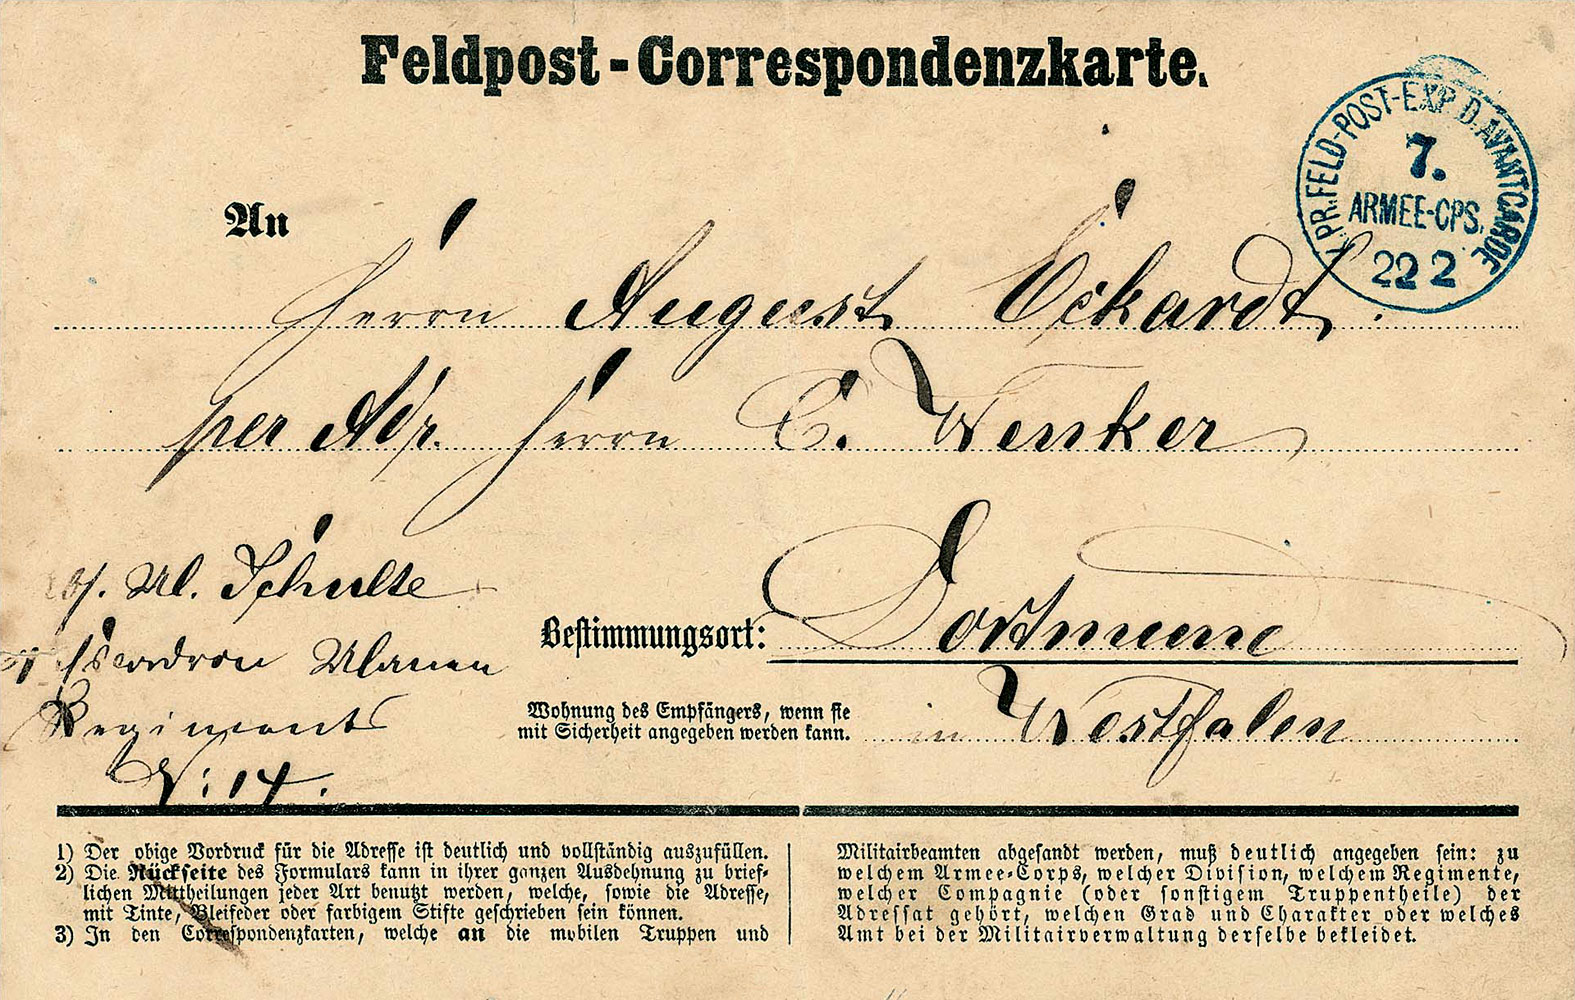 Feldpost-Correspondenzkarte.
K.PR.FELD-POST-EXP. D. AVANTGARDE
7.
ARMEE-CPS.
22 2
An
Herrn August Eckardt
per Adr. Herrn C. Wenker
Ul. Schulte
Escadron Ulanen
Regiments
N: 14.
Bestimmungsort: Dortmund
Wohnung des Empfängers, wenn sie
mit Sicherheit angegeben werden kann.
in Westfalen
1) Der obige Vordruck für die Adresse ist deutlich und vollständig auszufüllen.
2) Die Rückseite des Formulars kann in ihrer ganzen Ausdehnung zu brief-
lichen Mittheilungen jeder Art benutzt werden, welche, sowie die Adresse,
mit Tinte, Bleifeder oder farbigem Stifte geschrieben sein können.
3) In den Correspondenzkarten, welche an die mobilen Truppen und
Militairbeamten abgesandt werden, muß deutlich angegeben sein: zu
welchem Armee-Corps, welcher Division, welchem Regimente,
welcher Compagnie (oder sonstigem Truppentheile) der
Adressat gehört, welchen Grad und Charakter oder welches
Amt bei der Militairverwaltung derselbe bekleidet.